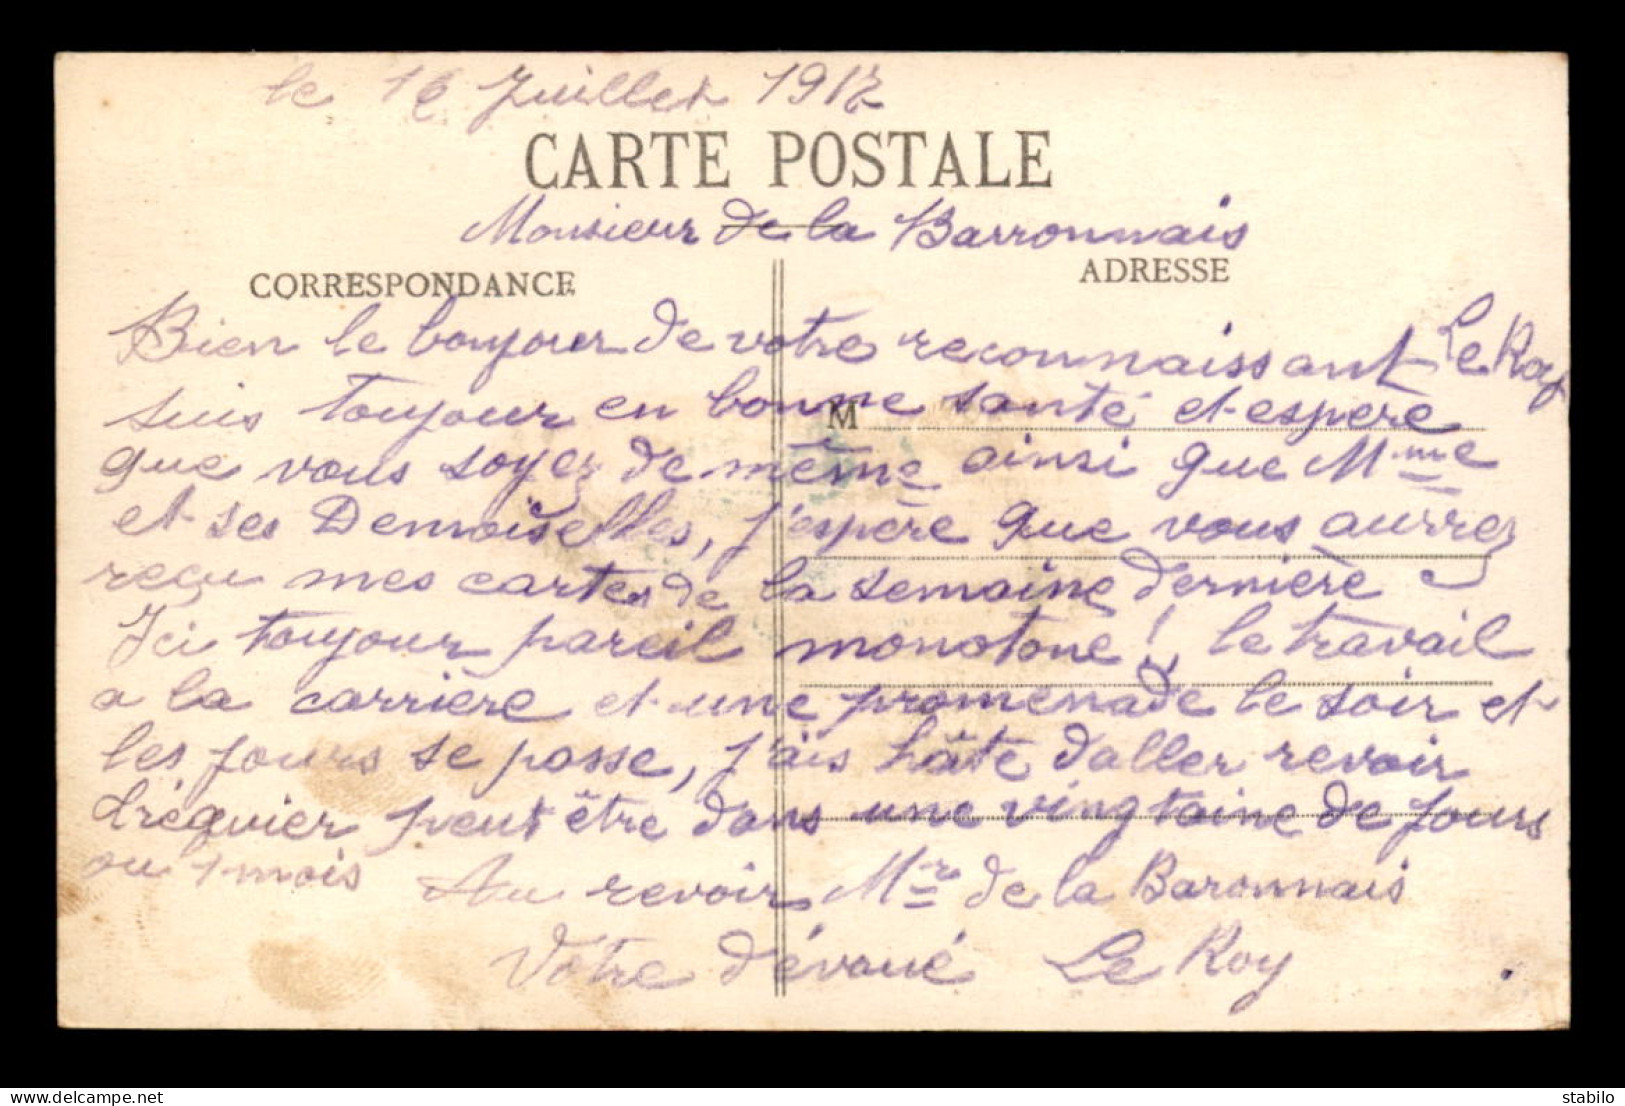 le 16 Juillet 1917
CARTE POSTALE
Monsieur de la Barronnais
CORRESPONDANCE
ADRESSE
Bien le bonjour de votre reconnaissant Le Roy
suis toujour en bonne santé et espère
M
que vous soyez de même ainsi que Mme
et ses Demoiselles, j'espère que vous aurrez
reçu mes cartes de la semaine dernière
Ici toujour pareil monotone!, le travail
a la carrière et une promenade le soir et
les jours se passe, j'ais hâte d'aller revoir
tréguier peut être dans une vingtaine de jours
ou 1 mois Au revoir Mr de la Baronnais
Votre dévoué Le Roy
delcampe.net
stabilo